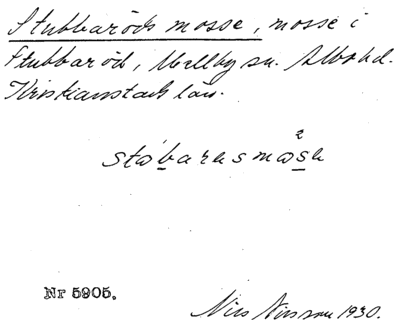 Stubbaröds mosse, mosse i
Stubbaröd, Mellby sn. Albo hd.
Kristianstads län.
stóbarasmosa
Nr 5905.
Nils Nilsson 1930.